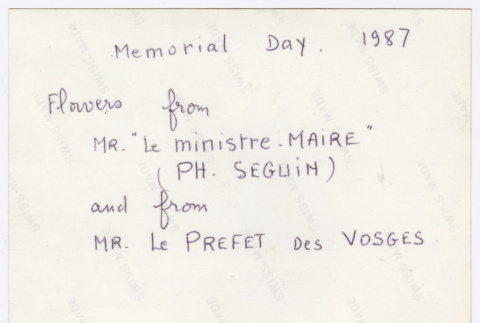 Memorial Day. 1987
Flowers from
MR. "Le ministre-MAIRE"
(PH. SEGUIN)
and from
MR. Le PREFET Des VOSGES.